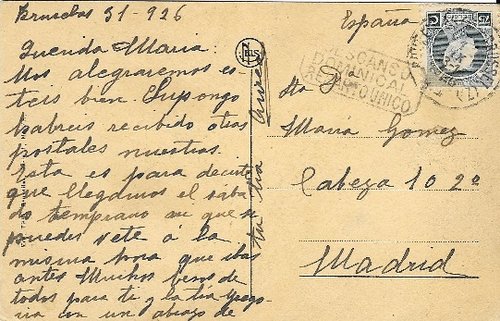 Bruselas 31-926
Querida Maria:
Nos alegraremos es
teis bien. Supongo
habreis recibido otras
postales nuestras.
Esta es para decirte
que llegamos el sába
do temprano asi que
puedes vete á la
misma hora que ibas
antes Muchos besos de
todos para ti y la tia
con un abrazo de
tu tia
España
DESCANSO
DOMINICAL
Sta Dª
Maria Gomez
Cabeza 10 2º
Madrid